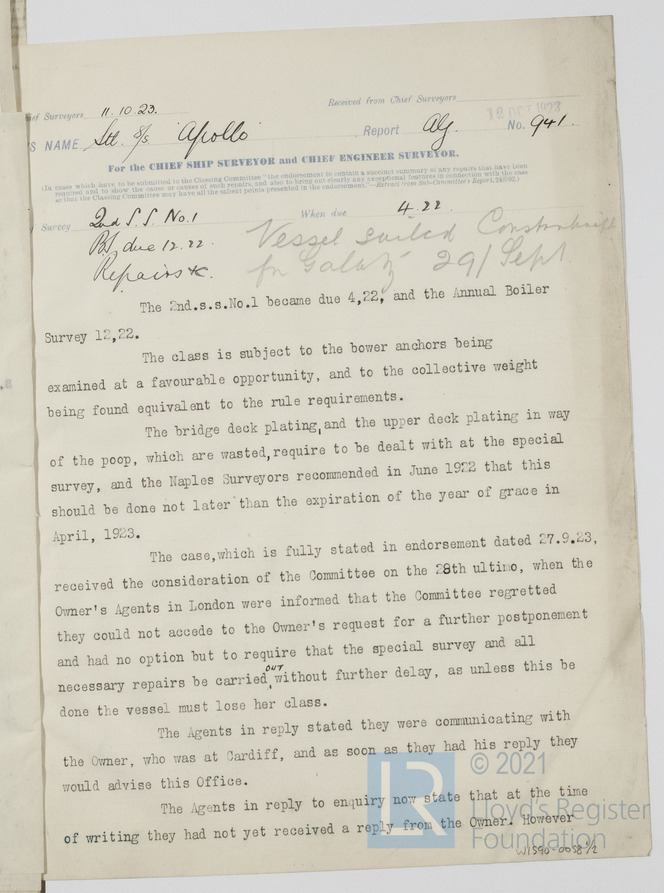 ief Surveyors 11.10.23. Received from Chief Surveyors
12 OCT 1923
S NAME Stl S/s "Apollo" Report Alg. No. 941.
For the CHIEF SHIP SURVEYOR and CHIEF ENGINEER SURVEYOR.
(In cases which have to be submitted to the Classing Committee "the endorsement to contain a succinct summary of any repairs that have been
required and to show the cause or causes of such repairs, and also to bring out clearly any exceptional features in connection with the case
so that the Classing Committee may have all the salient points presented in the endorsement."—Extract from Sub-Committee's Report,
Survey 2nd S.S. No.1 When due 4.22.
BS due 12.22.
Repairs &c.
Vessel sailed
for Galatz 29/Sept.
The 2nd.s.s.No.1 became due 4,22, and the Annual Boiler
Survey 12,22.
The class is subject to the bower anchors being
examined at a favourable opportunity, and to the collective weight
being found equivalent to the rule requirements.
The bridge deck plating, and the upper deck plating in way
of the poop, which are wasted, require to be dealt with at the special
survey, and the Naples Surveyors recommended in June 1922 that this
should be done not later than the expiration of the year of grace in
April, 1923.
The case, which is fully stated in endorsement dated 27.9.23,
received the consideration of the Committee on the 28th ultimo, when the
Owner's Agents in London were informed that the Committee regretted
they could not accede to the Owner's request for a further postponement
and had no option but to require that the special survey and all
necessary repairs be carried OUT without further delay, as unless this be
done the vessel must lose her class.
The Agents in reply stated they were communicating with
the Owner, who was at Cardiff, and as soon as they had his reply they
would advise this Office.
The Agents in reply to enquiry now state that at the time
of writing they had not yet received a reply from the Owner. However
LR
© 2021
Lloyd's Register
Foundation
W1590-0058 1/2